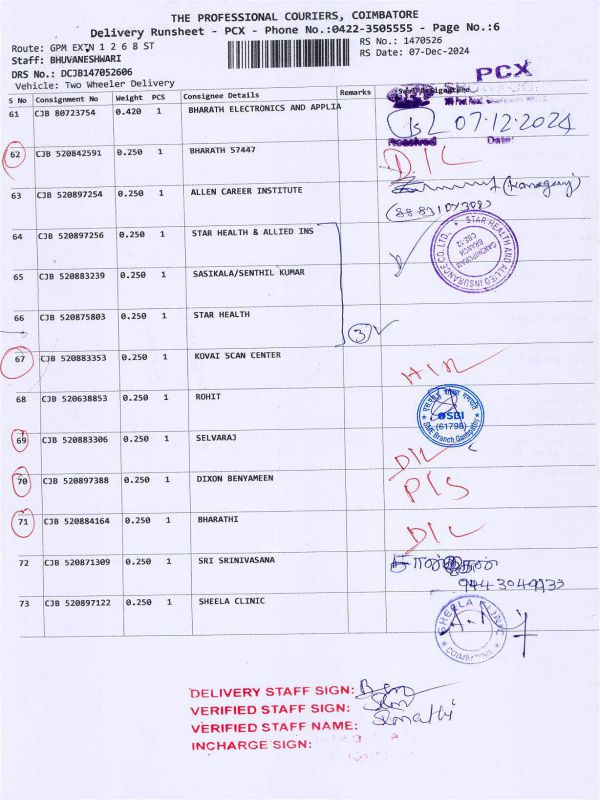 THE PROFESSIONAL COURIERS, COIMBATORE
Delivery Runsheet - PCX - Phone No.:0422-3505555 - Page No.:6
Route: GPM EXTN 1 2 6 8 ST
RS No.: 1470526
Staff: BHUVANESHWARI
RS Date: 07-Dec-2024
DRS No.: DCJB147052606
Vehicle: Two Wheeler Delivery
PCX
S No Consignment No Weight PCS Consignee Details Remarks
61 CJB 80723754 0.420 1 BHARATH ELECTRONICS AND APPLIA
07.12.2024
Received Date
62 CJB 520842591 0.250 1 BHARATH 57447 D/L
63 CJB 520897254 0.250 1 ALLEN CAREER INSTITUTE
64 CJB 520897256 0.250 1 STAR HEALTH & ALLIED INS
STAR HEALTH AND ALLIED INSURANCE CO.LTD.
GANDHIPURAM
BRANCH
CBE-12
65 CJB 520883239 0.250 1 SASIKALA/SENTHIL KUMAR
66 CJB 520875803 0.250 1 STAR HEALTH
3
67 CJB 520883353 0.250 1 KOVAI SCAN CENTER
68 CJB 520638853 0.250 1 ROHIT
SBI
(61798)
SME Branch Ganapathy
69 CJB 520883306 0.250 1 SELVARAJ D/L
70 CJB 520897388 0.250 1 DIXON BENYAMEEN P/S
71 CJB 520884164 0.250 1 BHARATHI D/L
72 CJB 520871309 0.250 1 SRI SRINIVASANA
73 CJB 520897122 0.250 1 SHEELA CLINIC
SHEELA CLINIC
COIMBATORE
DELIVERY STAFF SIGN:
VERIFIED STAFF SIGN:
VERIFIED STAFF NAME:
INCHARGE SIGN: